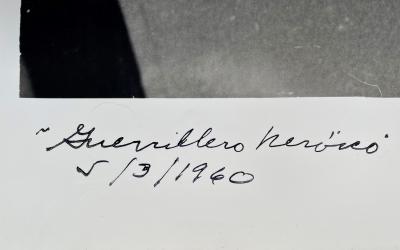 "Guerrillero Heróico"
5/3/1960